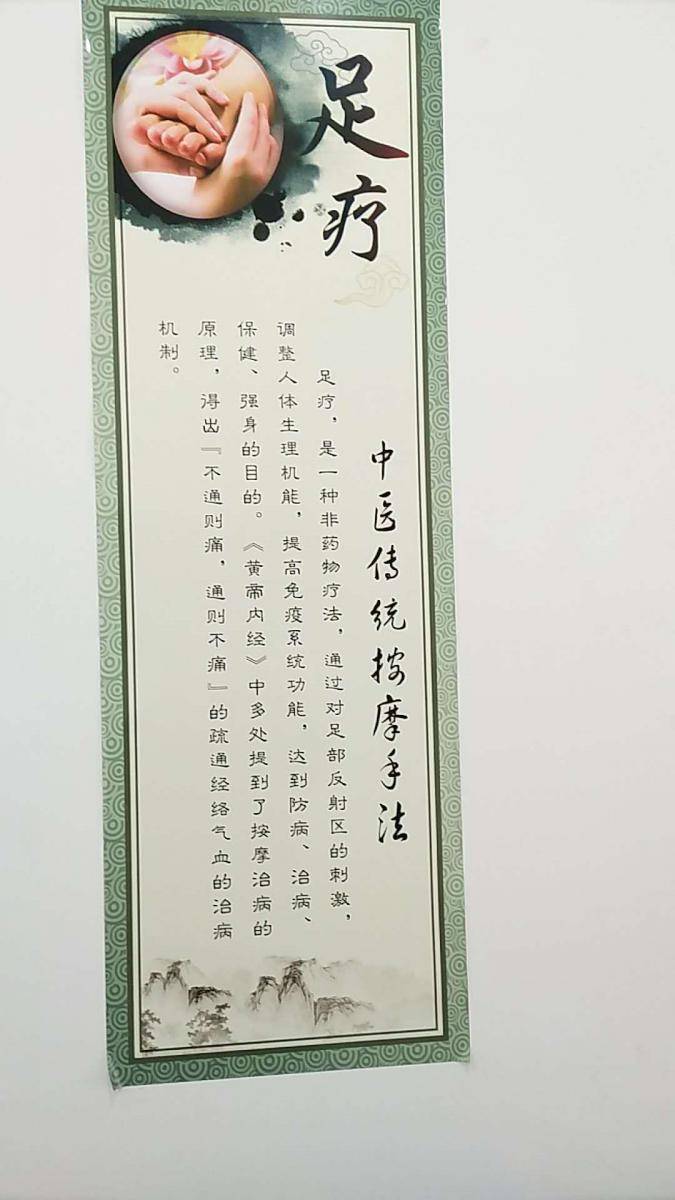 足疗
中医传统按摩手法
足疗，是一种非药物疗法，通过对足部反射区的刺激，
调整人体生理机能，提高免疫系统功能，达到防病、治病、
保健、强身的目的。《黄帝内经》中多处提到了按摩治病的
原理，得出『不通则痛，通则不痛』的疏通经络气血的治病
机制。